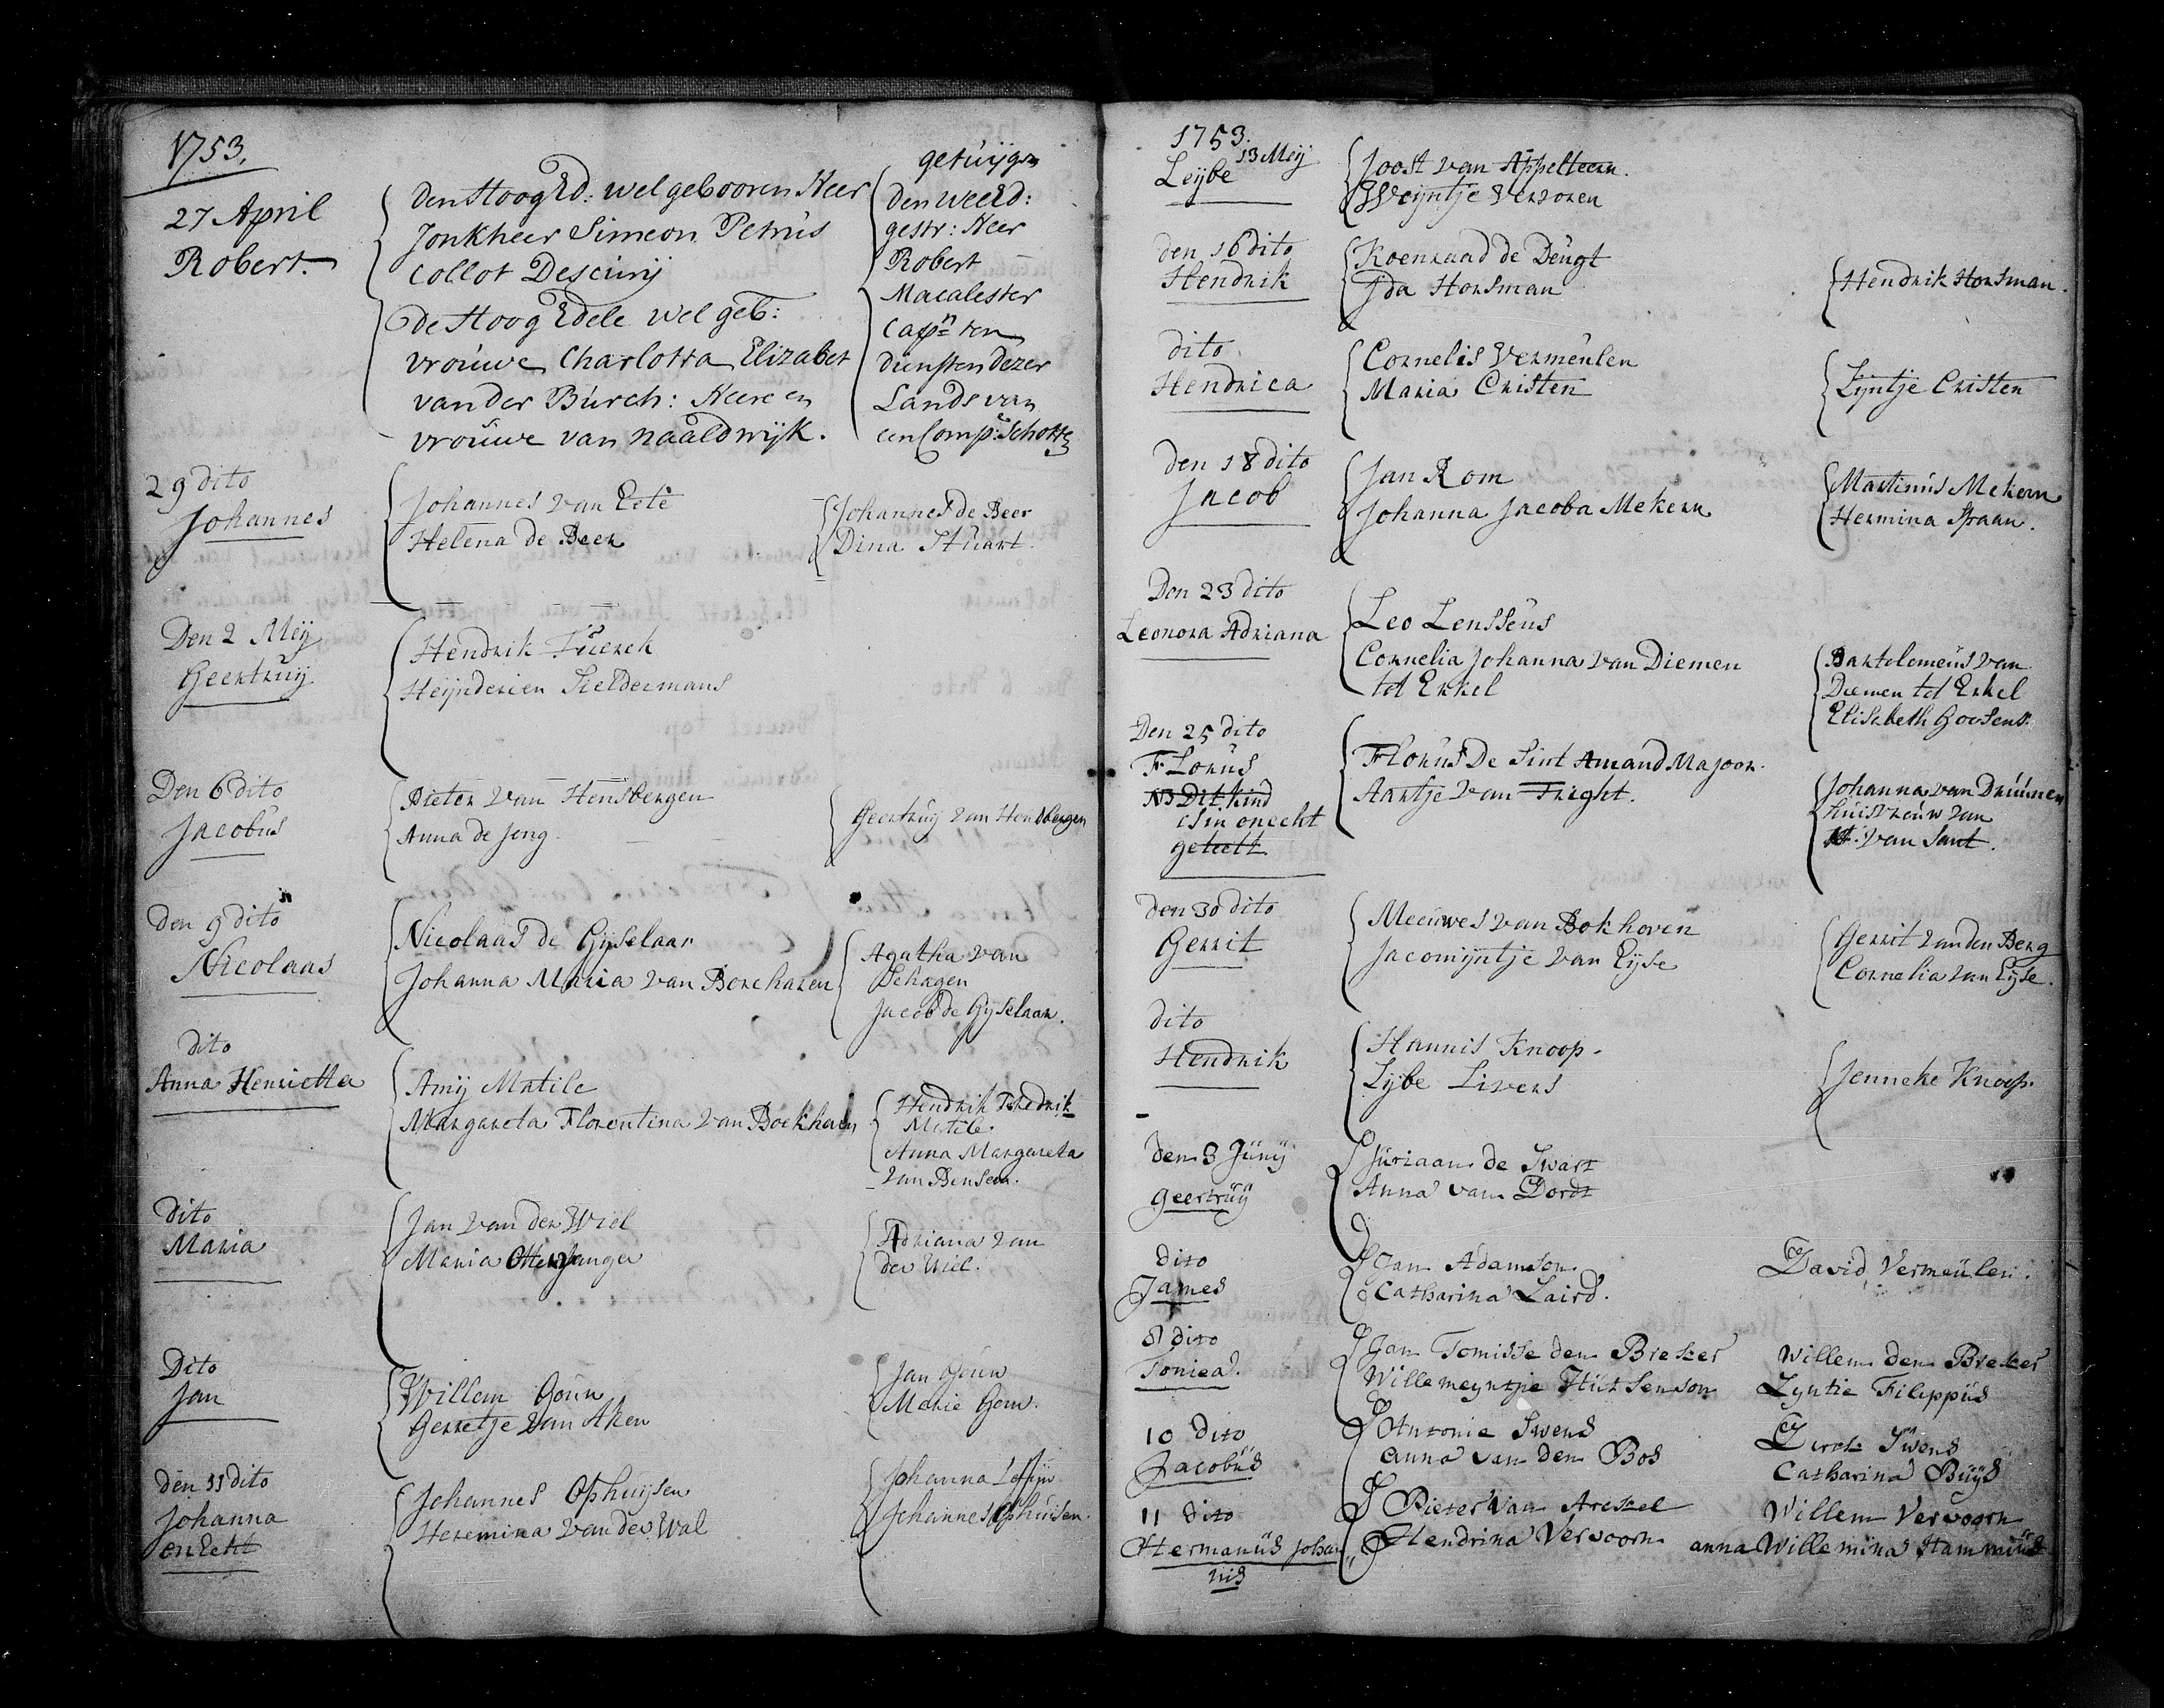 1753.
getuijgen
27 April
Robert.
Den Hoog Ed: welgebooren Heer
Jonkheer Simeon Petrus
Collot Descurij
De Hoog Edele wel geb:
vrouwe Charlotta Elizabet
van der Burch: Heere en
vrouwe van naaldwijk.
Den weEd:
gestr: Heer
Robert
Macalester
Capn ten
diensten dezer
Lands van
een Comp: Schotte
29 dito
Johannes
Johannes van Eete
Helena de Beer
Johannes de Beer
Dina Stuart.
Den 2 Meij
Geertruij
Hendrik
Heijnderien Sieldermans
Den 6 dito
Jacobus
Pieter van Hensbergen
Anna de Jong
Geertruij van Hensbergen
Den 9 dito
Nicolaas
Nicolaas de Gijselaar
Johanna Maria van Borcharen
Agatha van
Schagen
Jacob de Gijselaar.
dito
Anna Henrietta
Amij Matile
Margareta Florentina van Boekholt
Hendrik Fredrik
Matile.
Anna Margareta
van Bensem.
Dito
Maria
Jan van der Wiel
Maria
Adriana van
der Wiel.
Dito
Jan
Willem Gouw
Gerretje van Aken
Jan Gouw
Marie Gouw.
den 11 dito
Johanna
onEcht
Johannes Ophuijsen
Heremina van der Wal
Johanna
Johannes Ophuisen.
1753.
13 Meij
Leijbe
Joost van Appelteern.
Weijntje Verzoren
den 16 dito
Hendrik
Koenraad de Deugt
Ida Horsman
Hendrik Horsman.
dito
Hendrica
Cornelis Vermeulen
Maria Cristen
Lijntje Cristen
den 18 dito
Jacob
Jan Rom
Johanna Jacoba Mekern
Martinus Mekern
Hermina Spaan.
Den 23 dito
Leonora Adriana
Leo Lenssens
Cornelia Johanna van Diemen
tot Erkel
Bartolemeus van
Diemen tot Erkel
Elisabeth Goosens.
Den 25 dito
Florus
NB Dit kind
is in onecht
geteelt.
Florus De Sint Amand Majoor.
Aartje van Tright.
Johanna van Drunnen
huisvrouw van
van Sant.
den 30 dito
Gerrit
Meeuwes van Bokhoven
Jacomijntje van Eijse
Gerrit van den Berg
Cornelia van Eijse.
dito
Hendrik
Hannis Knoop.
Lijbe Livers
Jenneke Knoop.
den 3 Junij
Geertruij
Juriaan de Swart
Anna van Dordt
dito
James
Jan Adamson.
Catharina Laird.
David Vermeulen.
8 dito
Tonica.
Jan Tomisse den Breker
Willemeyntjie Hutsenson
Willem den Breker
Lyntie Filippus
10 Dito
Jacobus
Antonie Swens
anna van den Bos
Dirck Swens
Catharina Buys
11 dito
Hermanus Johan
nis
Pieter van Areskel
Hendrina Vervoorn
Willem Vervoorn
anna Willemina Hammius